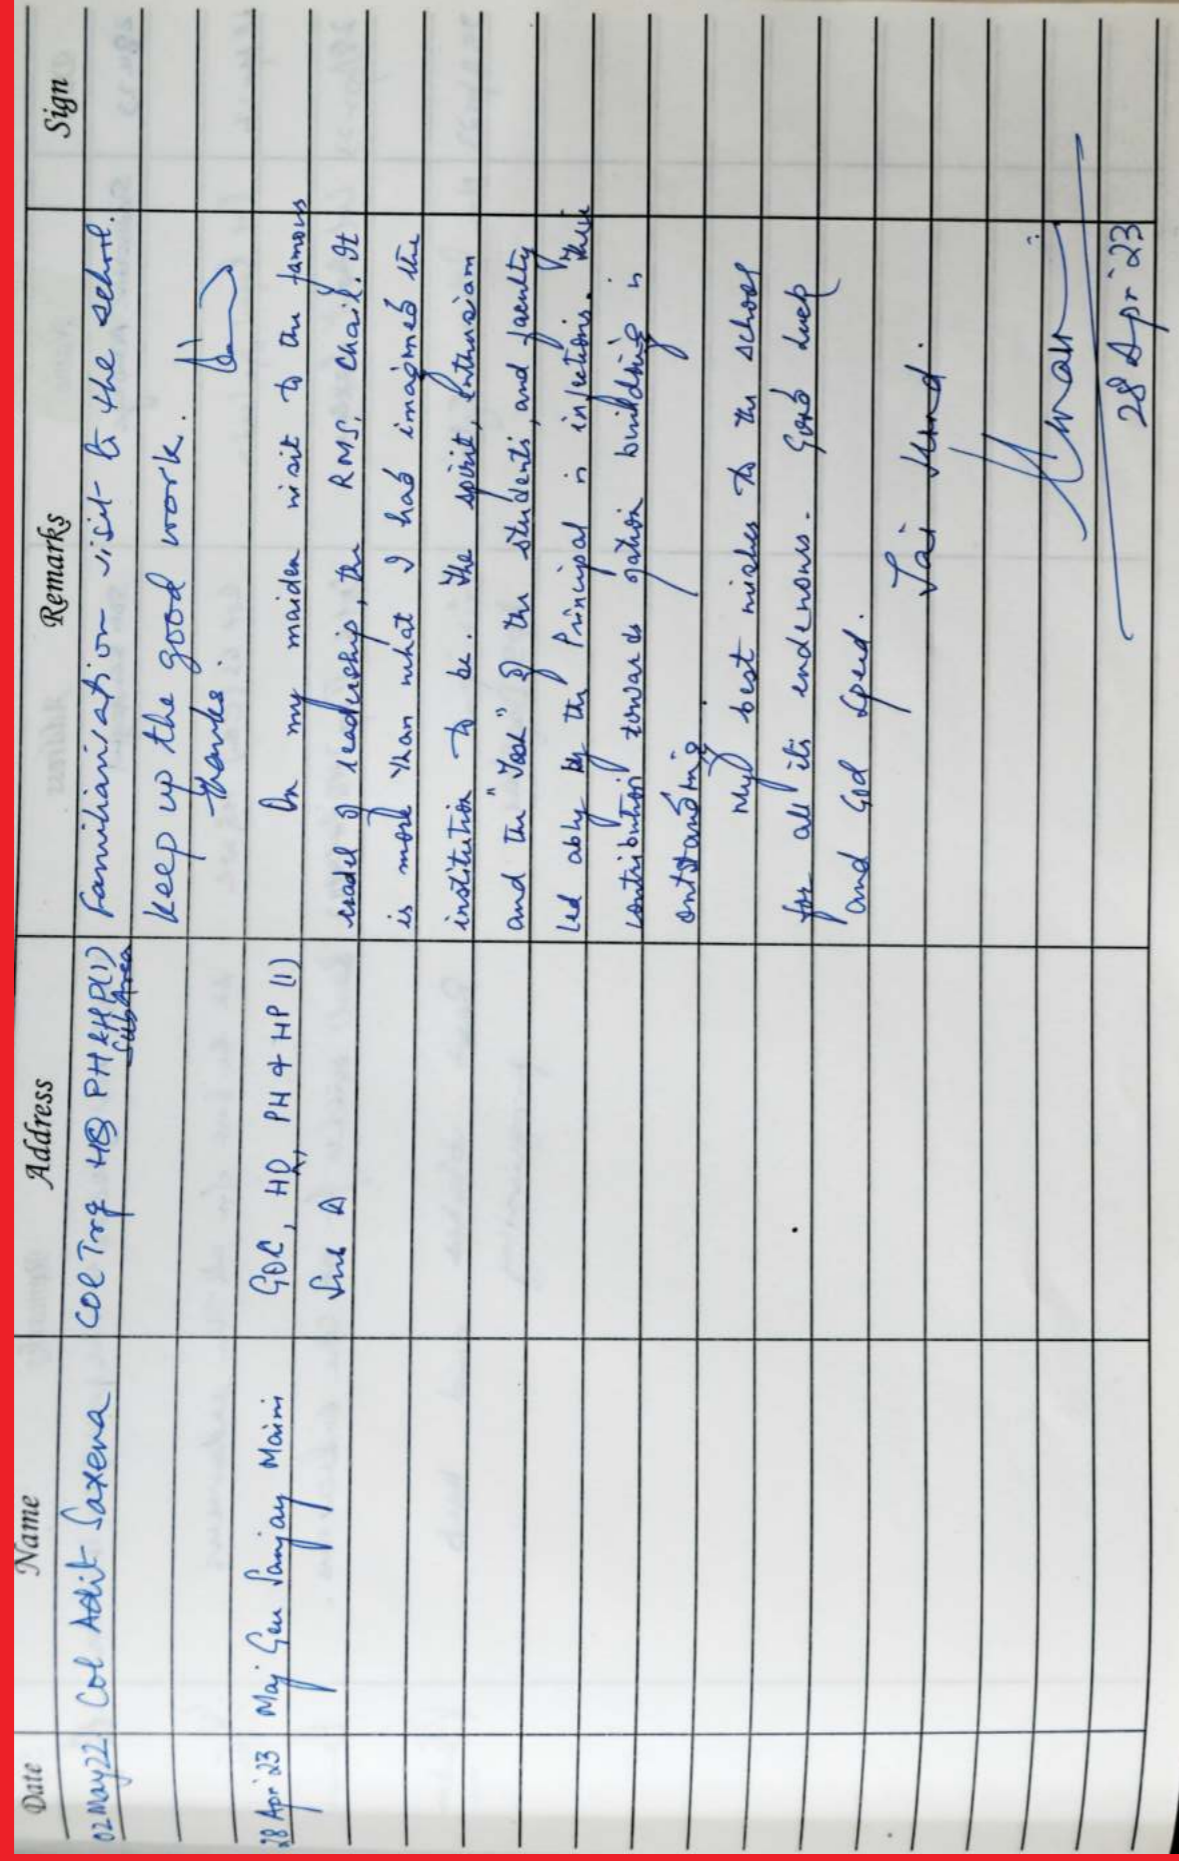 Date Name Address Remarks Sign
02 May 22 Col Adit Saxena Col Trg HQ PH & HP(I) Sub Area Familiarisation visit to the school.
Keep up the good work.
Thanks
28 Apr '23 Maj Gen Sanjay Maini GOC, HQ, PH & HP (I) On my maiden visit to the famous
Sub A cradel of leadership, the RMS, Chail. It
is more than what I had imagined the
institution to be. The spirit, enthusiasm
and the "Josh" of the students, and faculty
led ably by the Principal is infectious. Their
contribution towards nation building is
outstanding.
My best wishes to the school
for all its endevours. Good luck
and God speed.
Jai Hind.
28 Apr '23